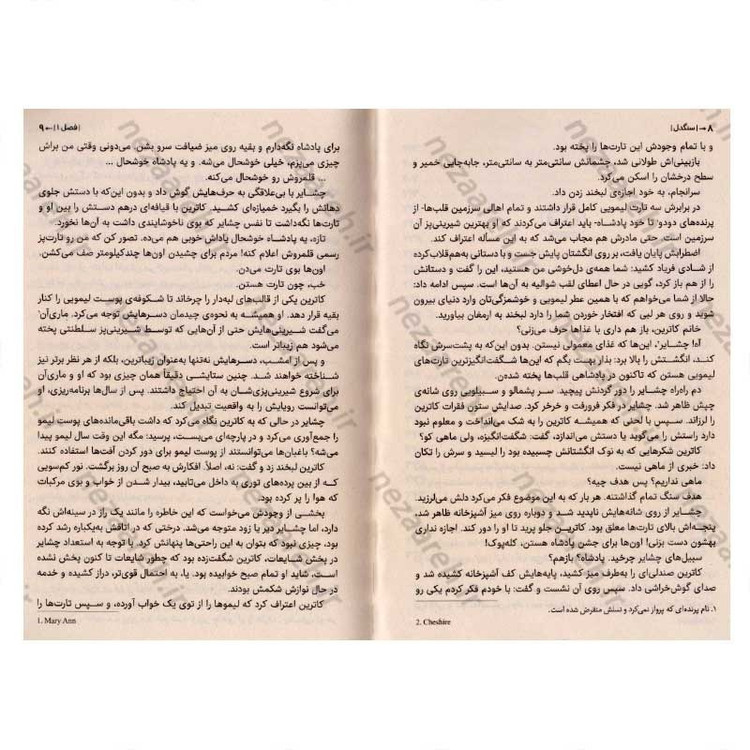 ۸ →|سنگدل|
و با تمام وجودش این تارت‌ها را پخته بود.
بازبینی‌اش طولانی شد، چشمانش سانتی‌متر به سانتی‌متر، جابه‌جایی خمیر و
سطح درخشان را اسکن می‌کرد.
سرانجام، به خود اجازه‌ی لبخند زدن داد.
در برابرش سه تارت لیمویی کامل قرار داشتند و تمام اهالی سرزمین قلب‌ها- از
پرنده‌های دودو۱ تا خود پادشاه- باید اعتراف می‌کردند که او بهترین شیرینی‌پز آن
سرزمین است. حتی مادرش هم مجاب می‌شد که به این مسأله اعتراف کند.
اضطرابش پایان یافت، بر روی انگشتان پایش جست و با دستانی به‌هم‌قلاب‌کرده
از شادی فریاد کشید: شما همه‌ی دل‌خوشی من هستید، این را گفت و دستانش
را از هم باز کرد، گویی در حال اعطای لقب شوالیه به آن‌ها است. سپس ادامه داد:
حالا از شما می‌خواهم که با همین عطر لیمویی و خوشمزگی‌تان وارد دنیای بیرون
شوید و روی هر لبی که افتخار خوردن شما را دارد لبخند به ارمغان بیاورید.
خانم کاترین، باز هم داری با غذاها حرف می‌زنی؟
آه! چشایر۲، این‌ها که غذای معمولی نیستن. بدون این‌که به پشت‌سرش نگاه
کند، انگشتش را بالا برد: بذار بهت بگم که این‌ها شگفت‌انگیزترین تارت‌های
لیمویی هستن که تاکنون در پادشاهی قلب‌ها پخته شده‌ن.
دم راه‌راه چشایر را دور گردنش پیچید. سر پشمالو و سبیلویی روی شانه‌ی
چپش ظاهر شد. چشایر در فکر فرورفت و خرخر کرد. صدایش ستون فقرات کاترین
را لرزاند. سپس با لحنی که همیشه کاترین را به شک می‌انداخت و معلوم نبود
دارد راستش را می‌گوید یا دستش می‌اندازد، گفت: شگفت‌انگیزه، ولی ماهی کو؟
کاترین شکرهایی که به نوک انگشتانش چسبیده بود را لیسید و سرش را تکان
داد: خبری از ماهی نیست.
ماهی نداریم؟ پس هدف چیه؟
هدف سنگ تمام گذاشتنه. هر بار که به این موضوع فکر می‌کرد دلش می‌لرزید.
چشایر از روی شانه‌هایش ناپدید شد و دوباره روی میز آشپزخانه ظاهر شد،
پنجه‌اش بالای تارت‌ها معلق بود. کاترین جلو پرید تا او را دور کند. اجازه نداری
بهشون دست بزنی! اون‌ها برای جشن پادشاه هستن، کله‌پوک!
سبیل‌های چشایر چرخید. پادشاه؟ بازهم؟
کاترین صندلی‌ای را به‌طرف میز کشید، پایه‌هایش کف آشپزخانه کشیده شد و
صدای گوش‌خراشی داد. سپس روی آن نشست و گفت: با خودم فکر کردم یکی رو
۱. نام پرنده‌ای که پرواز نمی‌کرد و نسلش منقرض شده است.
2. Cheshire
|فصل ۱|← ۹
برای پادشاه نگه‌دارم و بقیه روی میز ضیافت سرو بشن. می‌دونی وقتی من براش
چیزی می‌پزم، خیلی خوشحال می‌شه. و یه پادشاه خوشحال ...
... قلمروش رو خوشحال می‌کنه.
چشایر با بی‌علاقگی به حرف‌هایش گوش داد و بدون این‌که با دستش جلوی
دهانش را بگیرد خمیازه‌ای کشید. کاترین با قیافه‌ای درهم دستش را بین او و
تارت‌ها نگه‌داشت تا نفس چشایر که بوی ناخوشایندی داشت به آن‌ها نخورد.
تازه، یه پادشاه خوشحال پاداش خوبی هم می‌ده. تصور کن که من رو تارت‌پز
رسمی قلمروش اعلام کنه! مردم برای چشیدن اون‌ها چندکیلومتر صف می‌کشن.
اون‌ها بوی تارت می‌دن.
خب، چون تارت هستن.
کاترین یکی از قالب‌های لبه‌دار را چرخاند تا شکوفه‌ی پوست لیمویی را کنار
بقیه قرار دهد. او همیشه به نحوه‌ی چیدمان دسرهایش توجه می‌کرد. ماری‌آن۱
می‌گفت شیرینی‌هایش حتی از آن‌هایی که توسط شیرینی‌پز سلطنتی پخته
می‌شود هم زیباتر است.
و پس از امشب، دسرهایش نه‌تنها به‌عنوان زیباترین، بلکه از هر نظر برتر نیز
شناخته خواهند شد. چنین ستایشی دقیقاً همان چیزی بود که او و ماری‌آن
برای شروع شیرینی‌پزی‌شان به آن احتیاج داشتند. پس از سال‌ها برنامه‌ریزی، او
می‌توانست رویایش را به واقعیت تبدیل کند.
چشایر در حالی که به کاترین نگاه می‌کرد که داشت باقی‌مانده‌های پوست لیمو
را جمع‌آوری می‌کرد و در پارچه‌ای می‌بست، پرسید: مگه این وقت سال لیمو پیدا
می‌شه؟ باغبان‌ها می‌توانستند از پوست لیمو برای دور کردن آفت‌ها استفاده کنند.
کاترین لبخند زد و گفت: نه، اصلاً. افکارش به صبح آن روز برگشت. نور کم‌سویی
که از بین پرده‌های توری به داخل می‌تابید، بیدار شدن از خواب و بوی مرکبات
که هوا را پر کرده بود.
بخشی از وجودش می‌خواست که این خاطره را مانند یک راز در سینه‌اش نگه
دارد، اما چشایر دیر یا زود متوجه می‌شد. درختی که در اتاقش به‌یکباره رشد کرده
بود، چیزی نبود که بتوان به این راحتی‌ها پنهانش کرد. با توجه به استعداد چشایر
در پخش شایعات، کاترین شگفت‌زده بود که چطور شایعات تا کنون پخش نشده
است، شاید او تمام صبح خوابیده بود. یا، به احتمال قوی‌تر، دراز کشیده و خدمه
در حال نوازش شکمش بودند.
کاترین اعتراف کرد که لیموها را از توی یک خواب آورده، و سپس تارت‌ها را
1. Mary Ann
nezaafreeh.ir